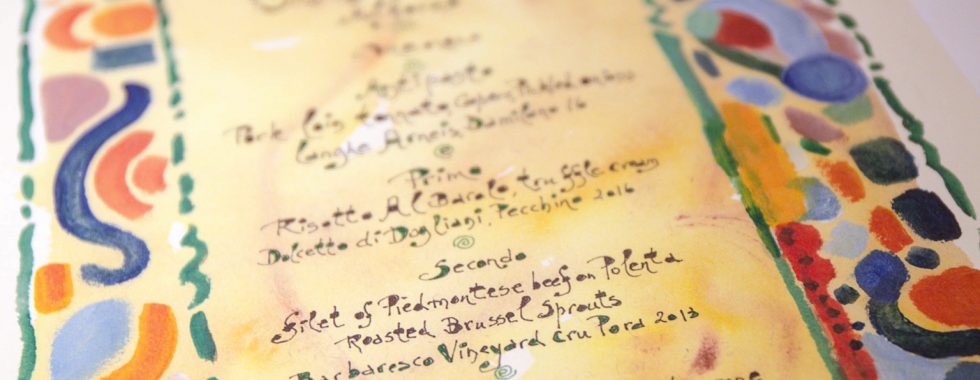 Antipasto
Pork loin tonnato, Capers, Pickled onions
Langhe Arneis, Damilano 16
Primo
Risotto Al Barolo, truffle cream
Dolcetto di Dogliani, Pecchino 2016
Secondo
filet of Piedmontese beef on Polenta
Roasted Brussel Sprouts
Barbaresco Vineyard Cru Pora 2013